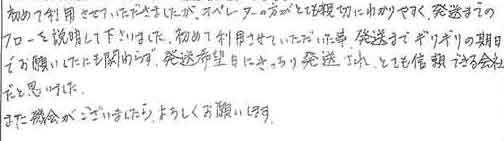 初めて利用させていただきましたが、オペレーターの方がとても親切にわかりやすく、発送までの
フローを説明して下さいました。初めて利用させていただいた事、発送までギリギリの期日
でお願いしたにも関わらず、発送希望日にきっちり発送され、とても信頼できる会社
だと思いました。
また機会がございましたら、よろしくお願いします。